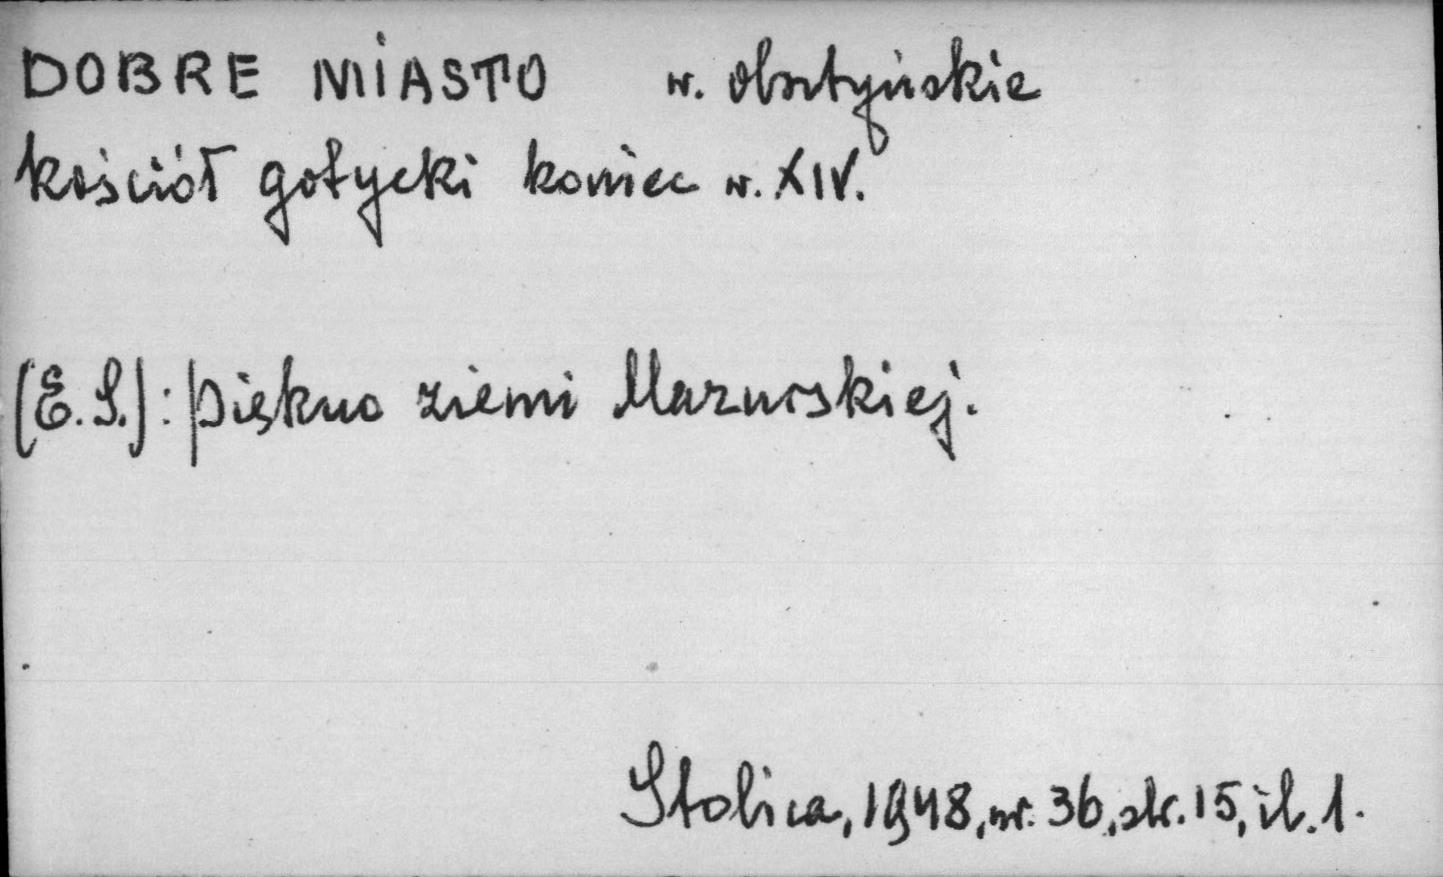 DOBRE MIASTO w. olsztyńskie
kościół gotycki koniec w. XIV.
(E.S.): Piękno ziemi Mazurskiej.
Stolica, 1948, nr. 36, str. 15, il. 1.